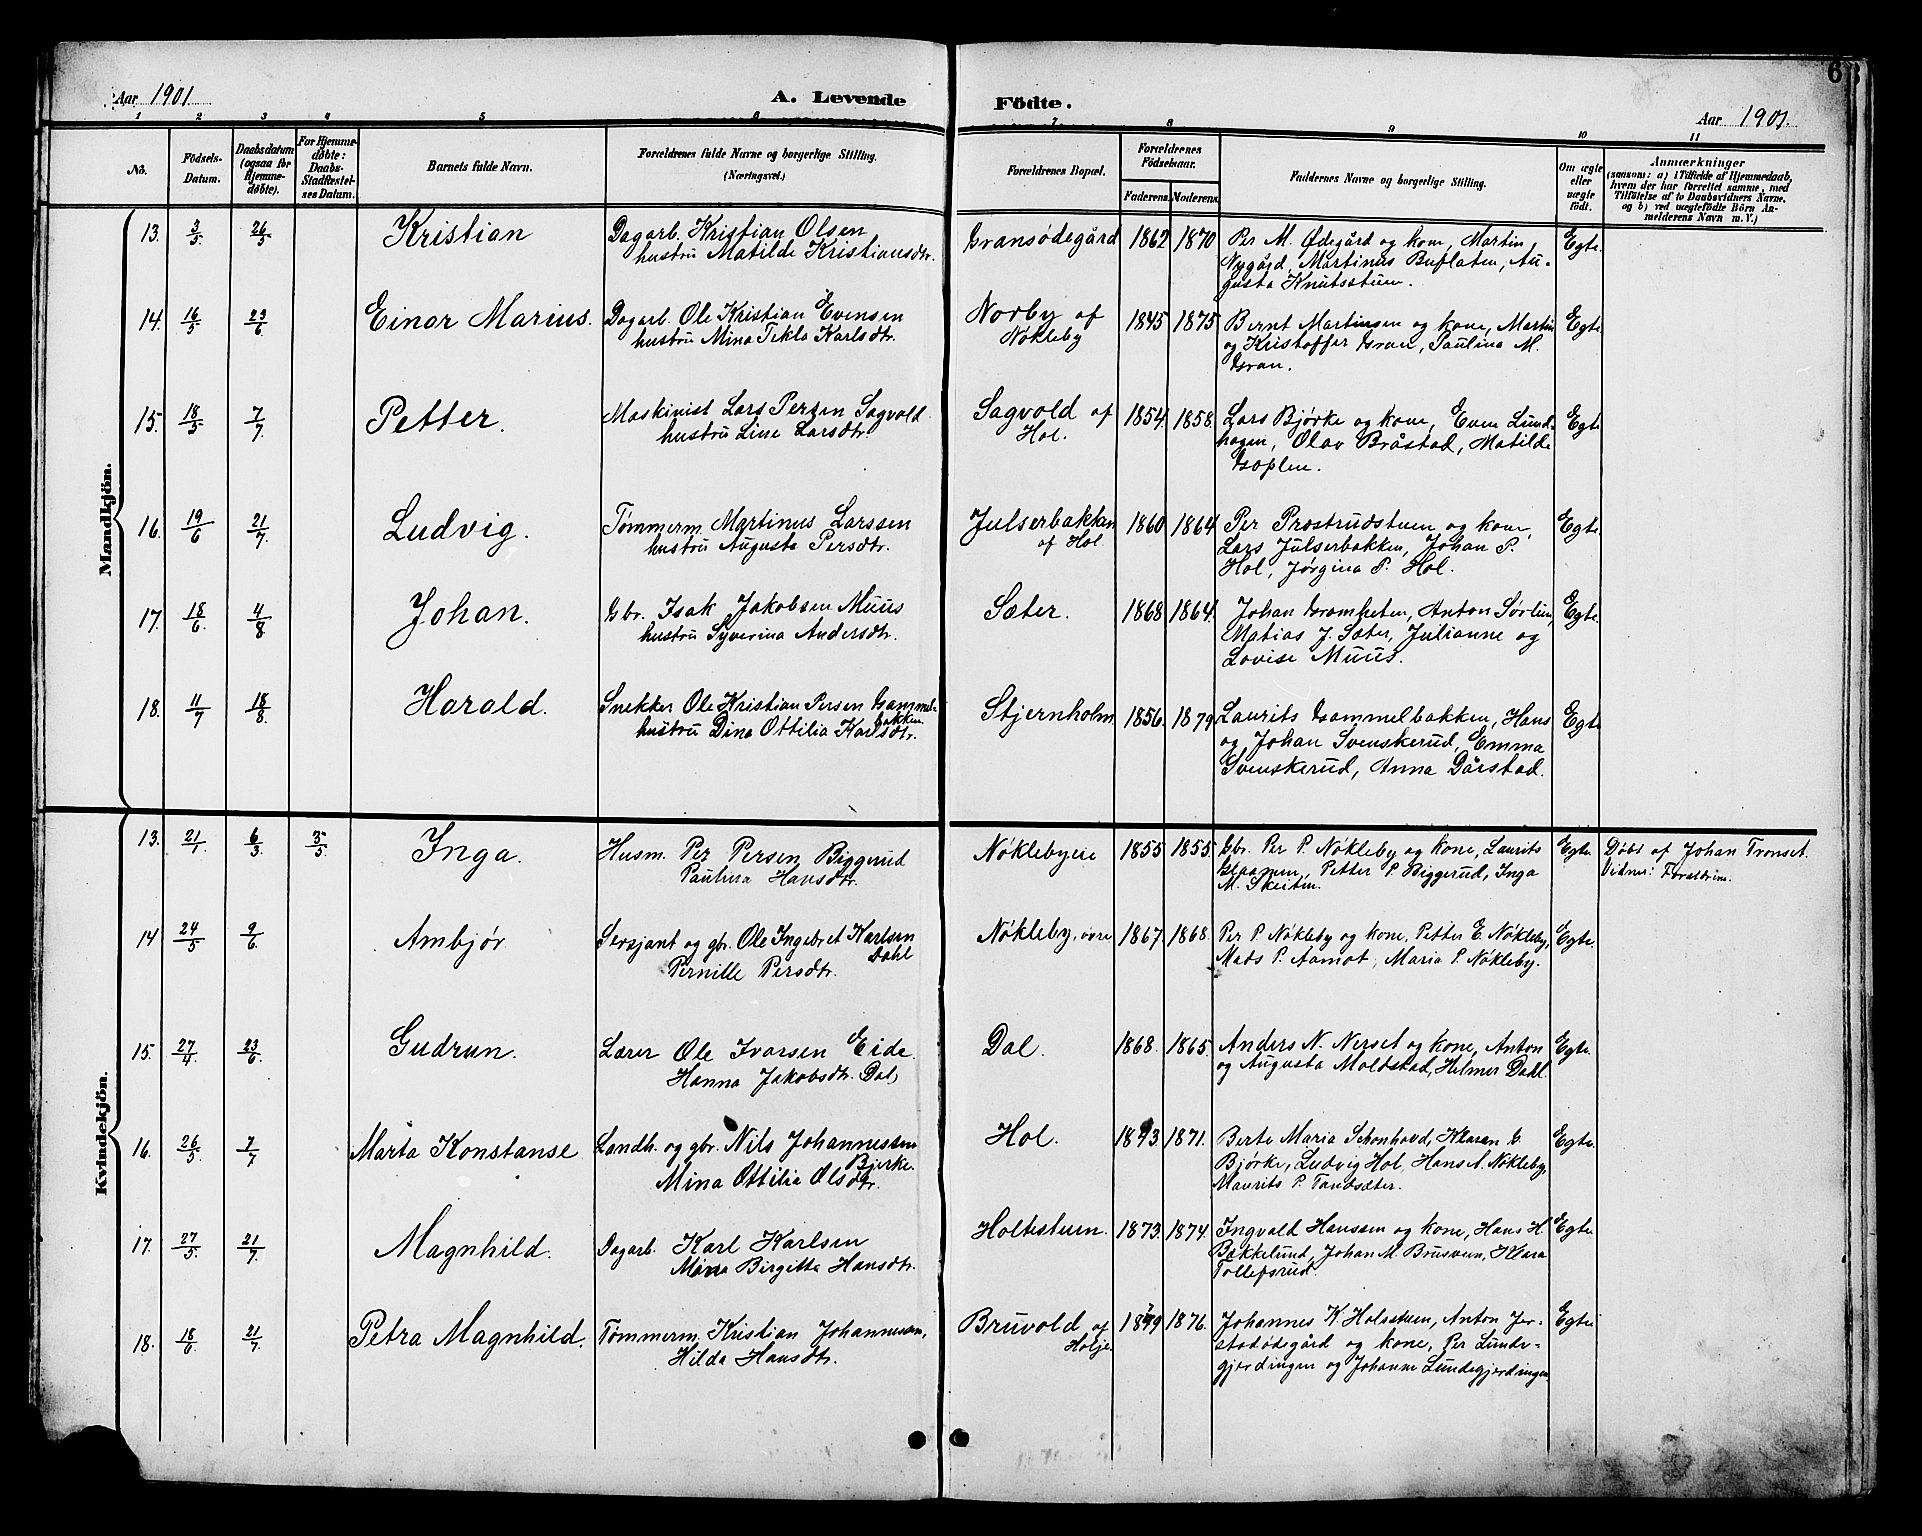 Aar 1901
A. Levende Födte.
Aar 1901.
63
1 2 3 4 5 6 7 8 9 10 11
No.
Födsels-
Datum.
Daabsdatum
(ogsaa for
Hjemme-
døbte).
For Hjemme-
døbte:
Daabs-
Stadfæstel-
ses Datum.
Barnets fulde Navn.
Forældrenes fulde Navne og borgerlige Stilling.
(Næringsvei.)
Forældrenes Bopæl.
Forældrenes
Födselsaar.
Faderens. Moderens.
Faddernes Navne og borgerlige Stilling.
Om ægte
eller
uægte
født.
Anmærkninger
(saasom: a) i Tilfælde af Hjemmedaab,
hvem der har forrettet samme, med
Tilföielse af to Daabsvidners Navne.
og b) ved uægtefödte Börn An-
melderens Navn m. V.)
Mandkjön.
13. 3/5 26/5 Kristian Dagarb. Kristian Olsen Gransødegård 1862 1870 Per M. Ødegård og kone, Martin Egte.
hustru Matilde Kristiansdtr. Nygård, Martinus Buflaten, Au-
gusta Knutsstuen.
14. 16/5 23/6 Einar Marius. Dagarb. Ole Kristian Evensen Norby af 1845 1875 Bernt Martinsen og kone, Martin Egte
hustru Mina Tekla Karlsdtr. Nøkleby og Kristoffer Gran, Paulina M.
Gran.
15. 18/5 7/7 Petter. Maskinist Lars Persen Sagvold Sagvold af 1854. 1858. Lars Bjørke og kone, Even Lund- Egte
hustru Line Larsdtr. Hol. hagen, Olav Bråstad, Matilde
Goplen.
16. 19/6 21/7 Ludvig. Tømmerm. Martinus Larssen Julserbakken 1860 1864. Per Prostrudstuen og kone, Egte.
hustru Augusta Persdtr. af Hol. Lars Julserbakken, Johan P.
Hol, Jørgina P. Hol.
17. 18/6 4/8 Johan. Gbr. Isak Jakobsen Muus Sæter. 1868 1864. Johan Gramheten, Anton Sørlien, Egte.
hustru Syverina Andersdtr. Matias J. Sæter, Julianne og
Lovise Muus.
18. 11/7 18/8 Harald. Snekker Ole Kristian Persen Gammel- Stjernholm 1856. 1879 Laurits Gammelbakken, Hans Egte
bakken
hustru Dina Ottilia Karlsdtr. og Johan Svenskerud, Emma
Svenskerud, Anna Dårstad.
Kvindekjön.
13. 21/1 6/3 3/5 Inga. Husm. Per Persen Biggerud Nøklebyeie 1855 1855. Gbr. Per P. Nøkleby og kone, Laurits Egte. Døbt af Johan Tronset.
Paulina Hansdtr. Glaamen, Petter P. Biggerud, Inga Vidner: Forældrene.
M. Skeiten.
14 24/5 9/6 Ambjør Sersjant og gbr. Ole Ingebret Karlsen Nøkleby, øvre 1867. 1868. Per P. Nøkleby og kone, Petter E. Nøkleby, Egte.
Dahl
Pernille Persdtr. Mads P. Aamot, Maria P. Nøkleby.
15. 27/4 23/6 Gudrun. Lærer Ole Ivarsen Eide. Dal. 1868. 1865. Anders N. Nerset og kone, Anton Egte.
Hanna Jakobsdtr. Dal, og Augusta Moldstad, Helmer Dahl.
16. 26/5 7/7 Marta Konstanse Landh. og gbr. Nils Johannessen Hol. 1873. 1871. Berte Maria Schonhovd, Klaran G. Egte.
Bjerke.
Mina Ottilia Olsdtr. Bjørke, Ludvig Hol, Hans A. Nøkleby,
Maurits P. Tandsæter.
17. 27/5 21/7 Magnhild. Dagarb. Karl Karlsen Holtestuen. 1873. 1874. Ingvald Hanssen og kone, Hans H. Egte.
Mina Birgitta Hansdtr. Bækkelund, Johan M. Brusveen, Klara
Tollefsrud.
18. 18/6 21/7 Petra Magnhild. Tømmerm. Kristian Johannessen, Bruvold af 1879 1876. Johannes K. Holsstuen, Anton Jer- Egte
Hilda Hansdtr. Holje stadødegård og kone, Per Lunde-
gjerdingen og Johanne Lundegjerdingen